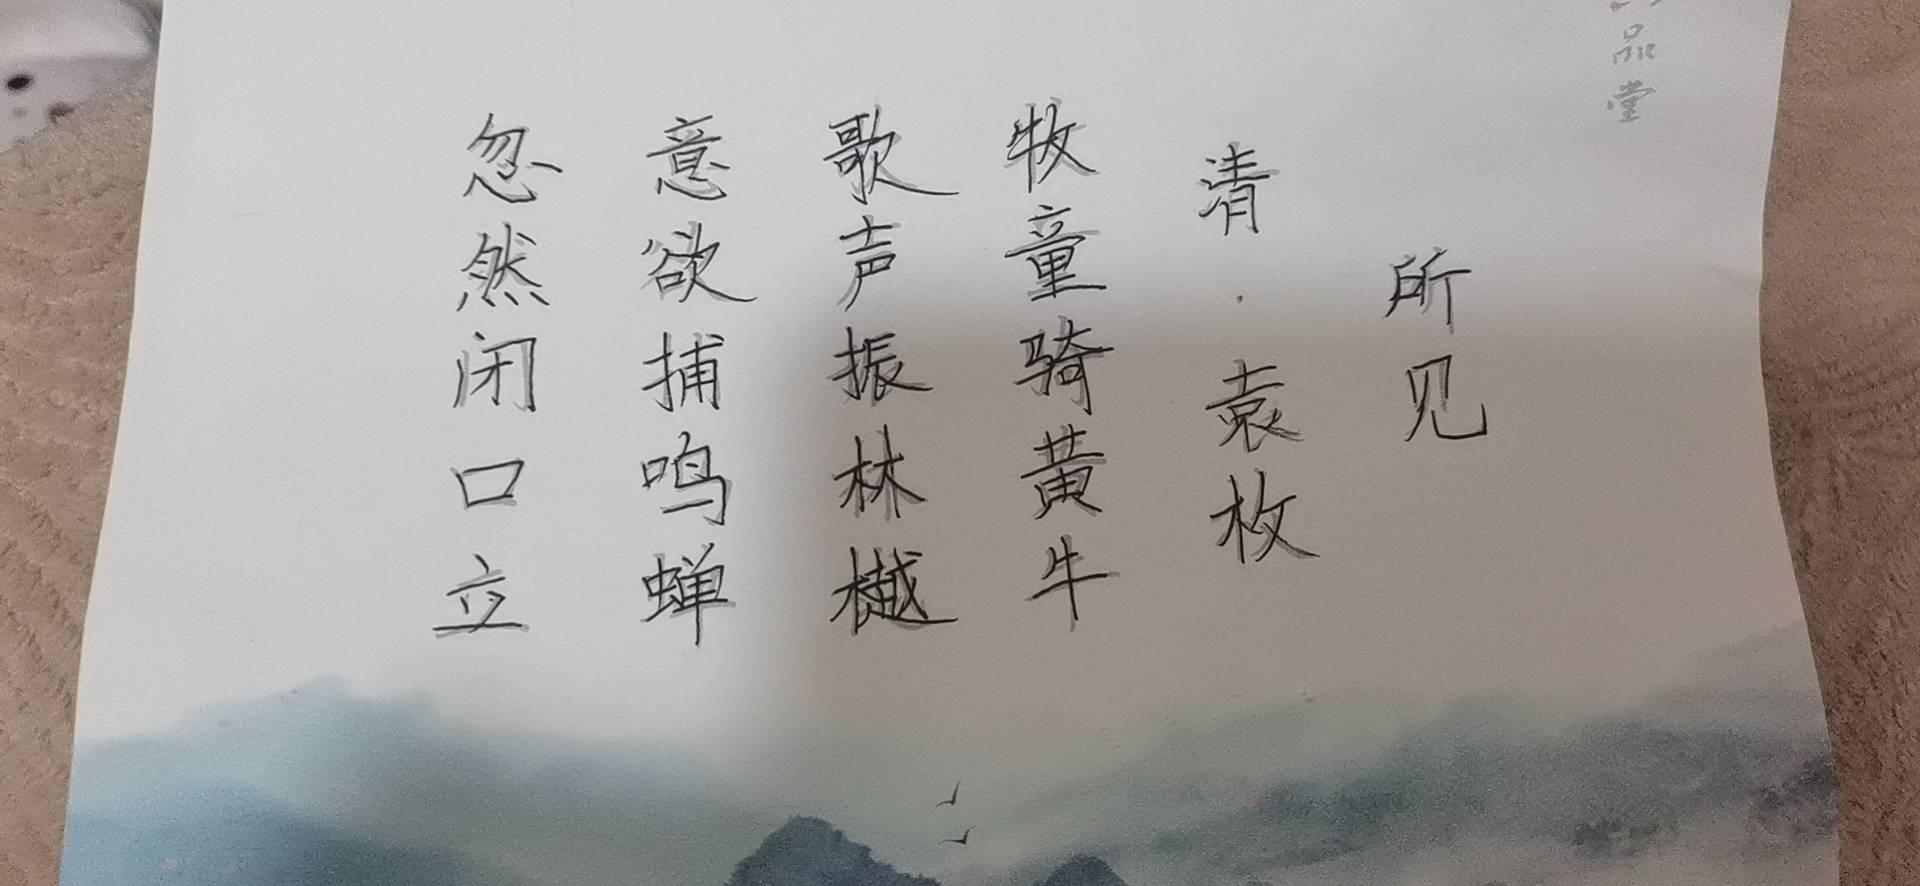 品堂
所见
清·袁枚
牧童骑黄牛
歌声振林樾
意欲捕鸣蝉
忽然闭口立